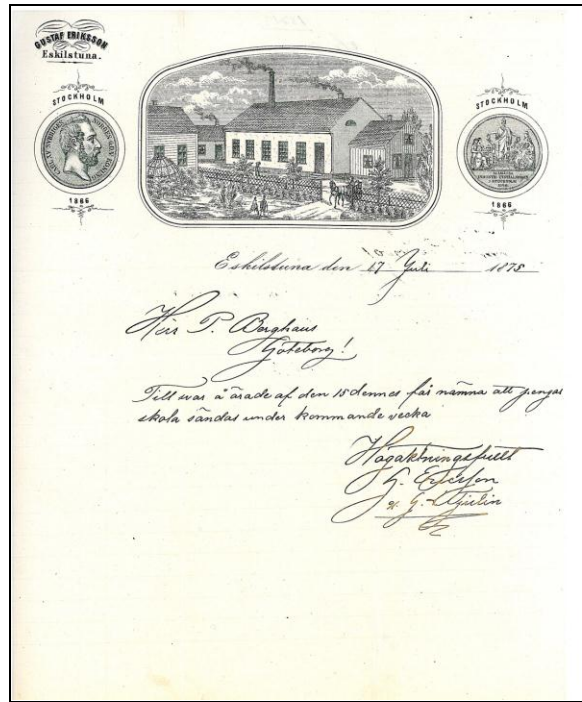 GUSTAF ERIKSSON
Eskilstuna.
STOCKHOLM
1866
STOCKHOLM
1866
Eskilstuna den 17 Juli 1875
Herr P. Berghaus
Göteborg!
Till svar å ärade af den 15 dennes får nämna att pengar
skola sändas under kommande vecka
Högaktningsfullt
G. Ericsson